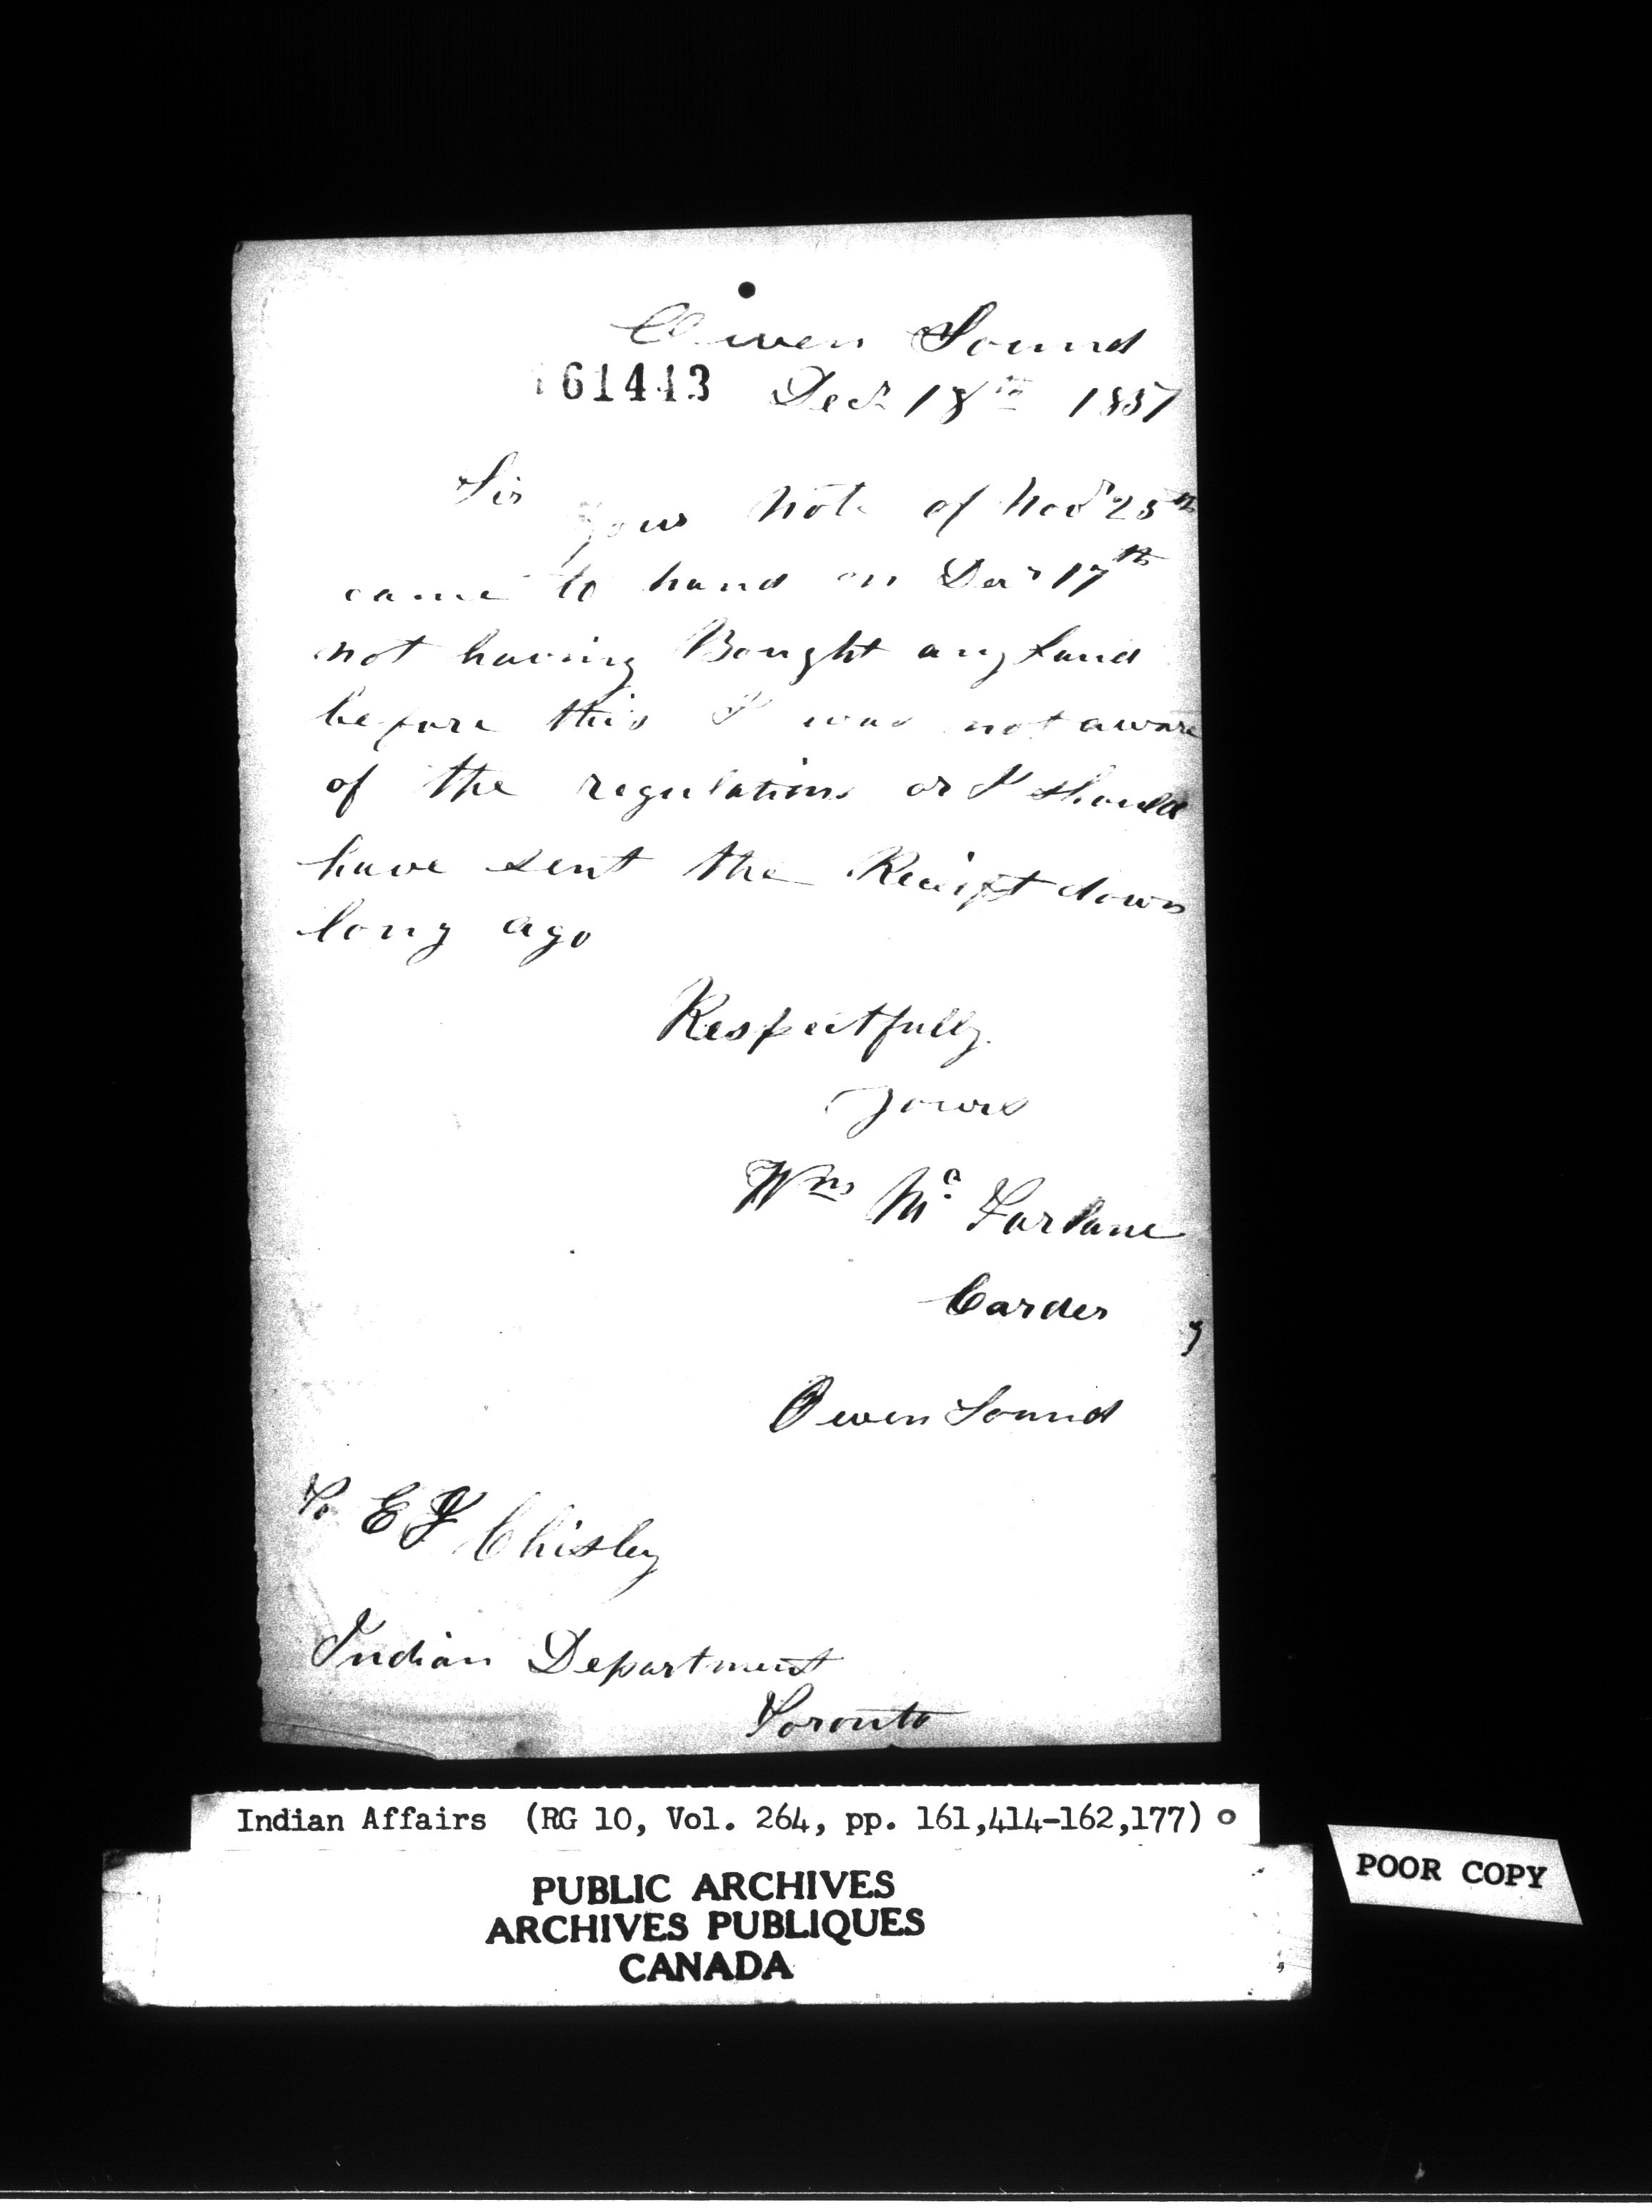 Owen Sound
161443 Decr 18th 1857
Sir
Your Note of Novr 25th
came to hand on Decr 17th
not having Bought any Land
before this I was not aware
of the regulations or I should
have sent the Receipt down
long ago
Respectfully
Yours
Wm Mc Farlane
Carder
Owen Sound
To E F Chisley
Indian Department
Toronto
Indian Affairs (RG 10, Vol. 264, pp. 161,414-162,177)
POOR COPY
PUBLIC ARCHIVES
ARCHIVES PUBLIQUES
CANADA